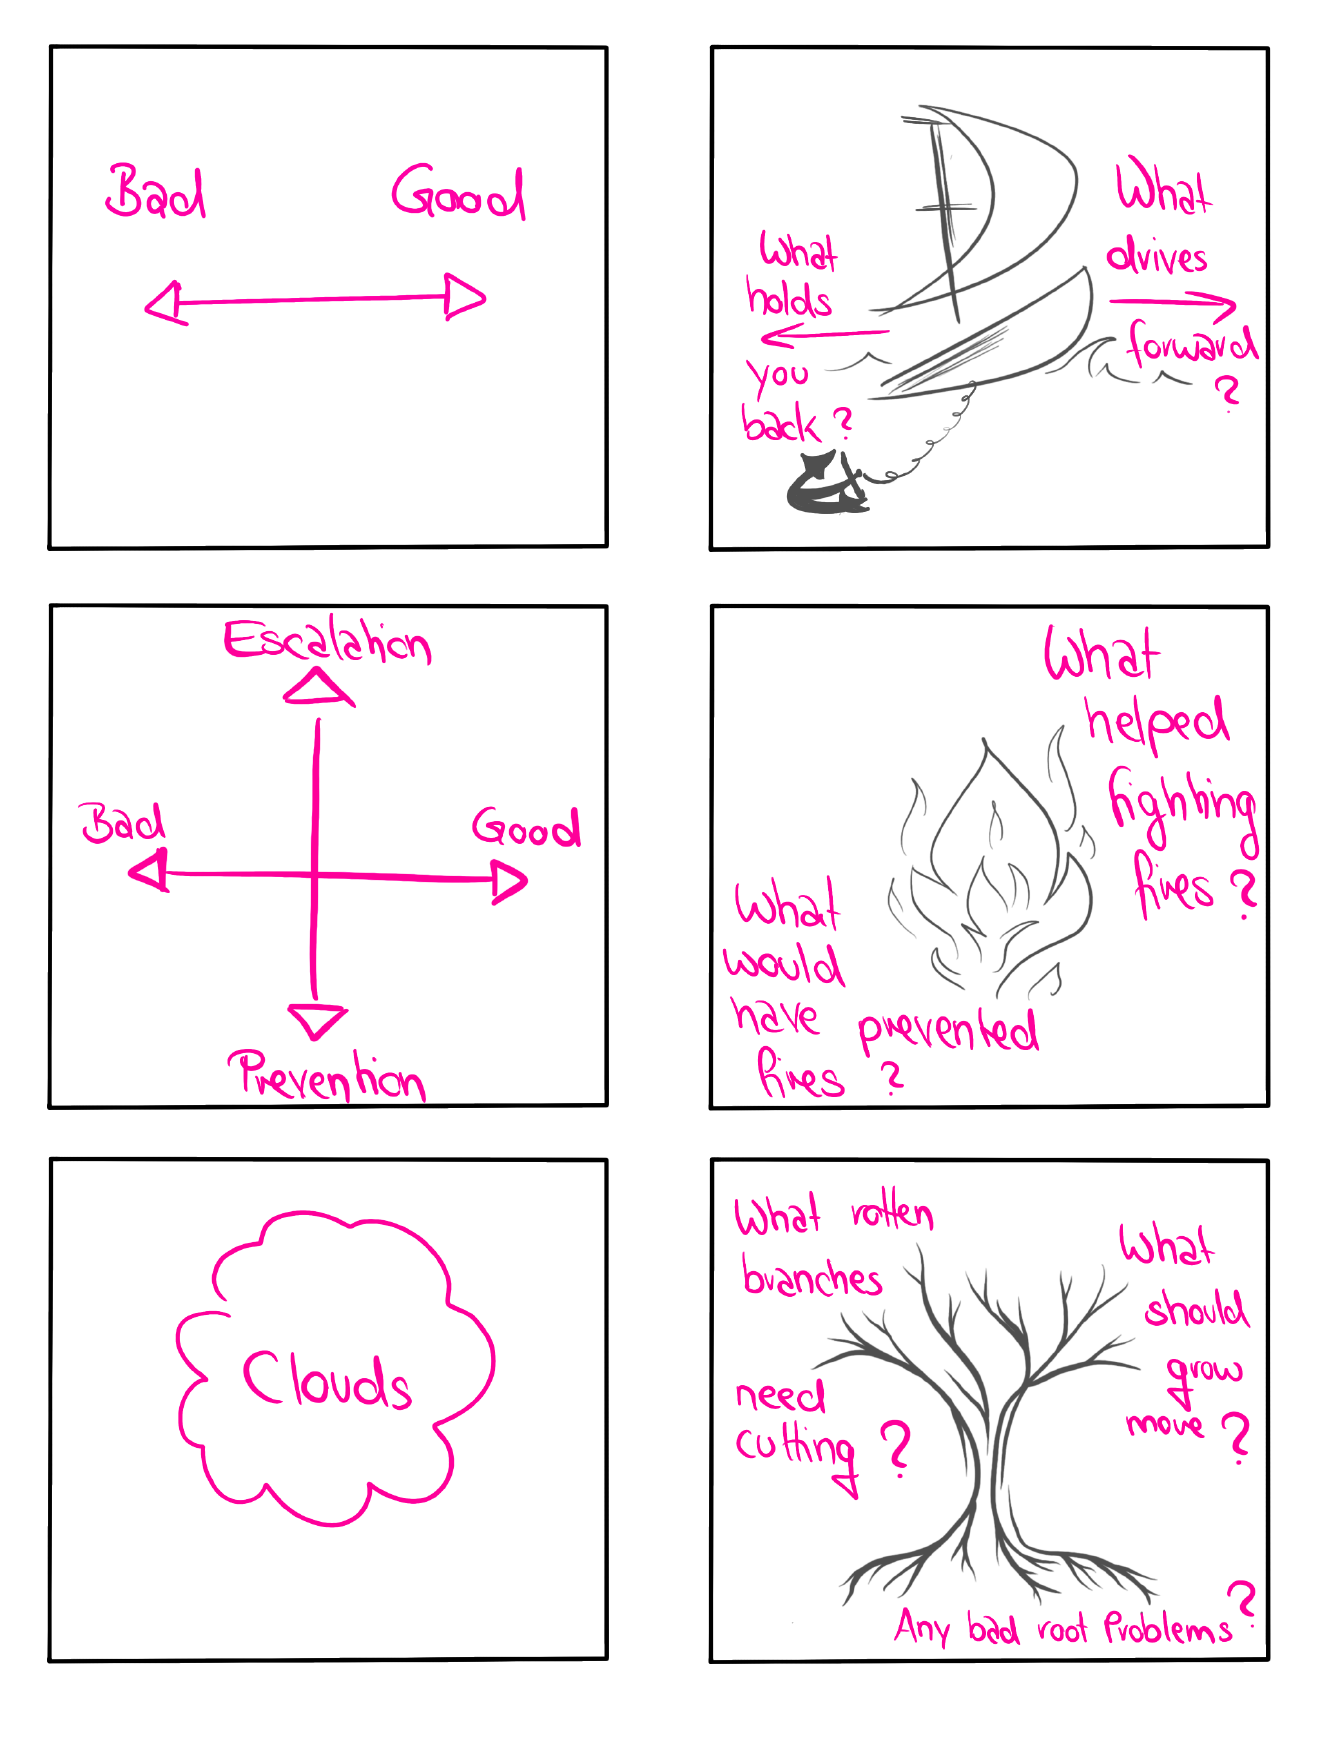 Bad
Good
What
holds
you
back?
What
drives
forward
?
Escalation
Bad
Good
Prevention
What
helped
fighting
fires?
What
would
have prevented
fires ?
Clouds
What rotten
branches
need
cutting?
What
should
grow
move?
Any bad root Problems?